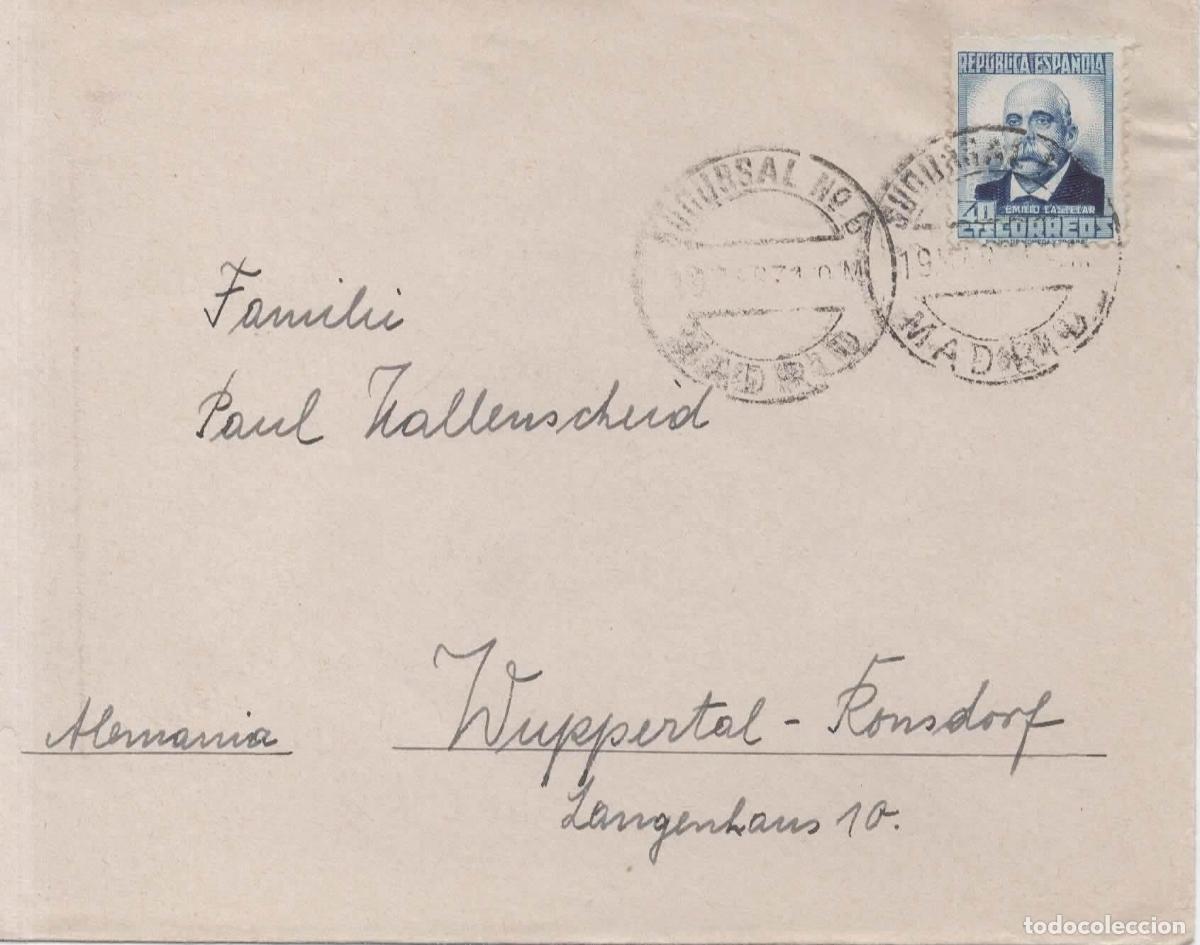 REPÚBLICA ESPAÑOLA
EMILIO CASTELAR
40 CTS CORREOS
SUCURSAL Nº 6
MADRID
SUCURSAL
19
MADRID
Familie
Paul Hallenscheid
Alemania
Wuppertal - Ronsdorf
Langenhaus 10.
todocoleccion